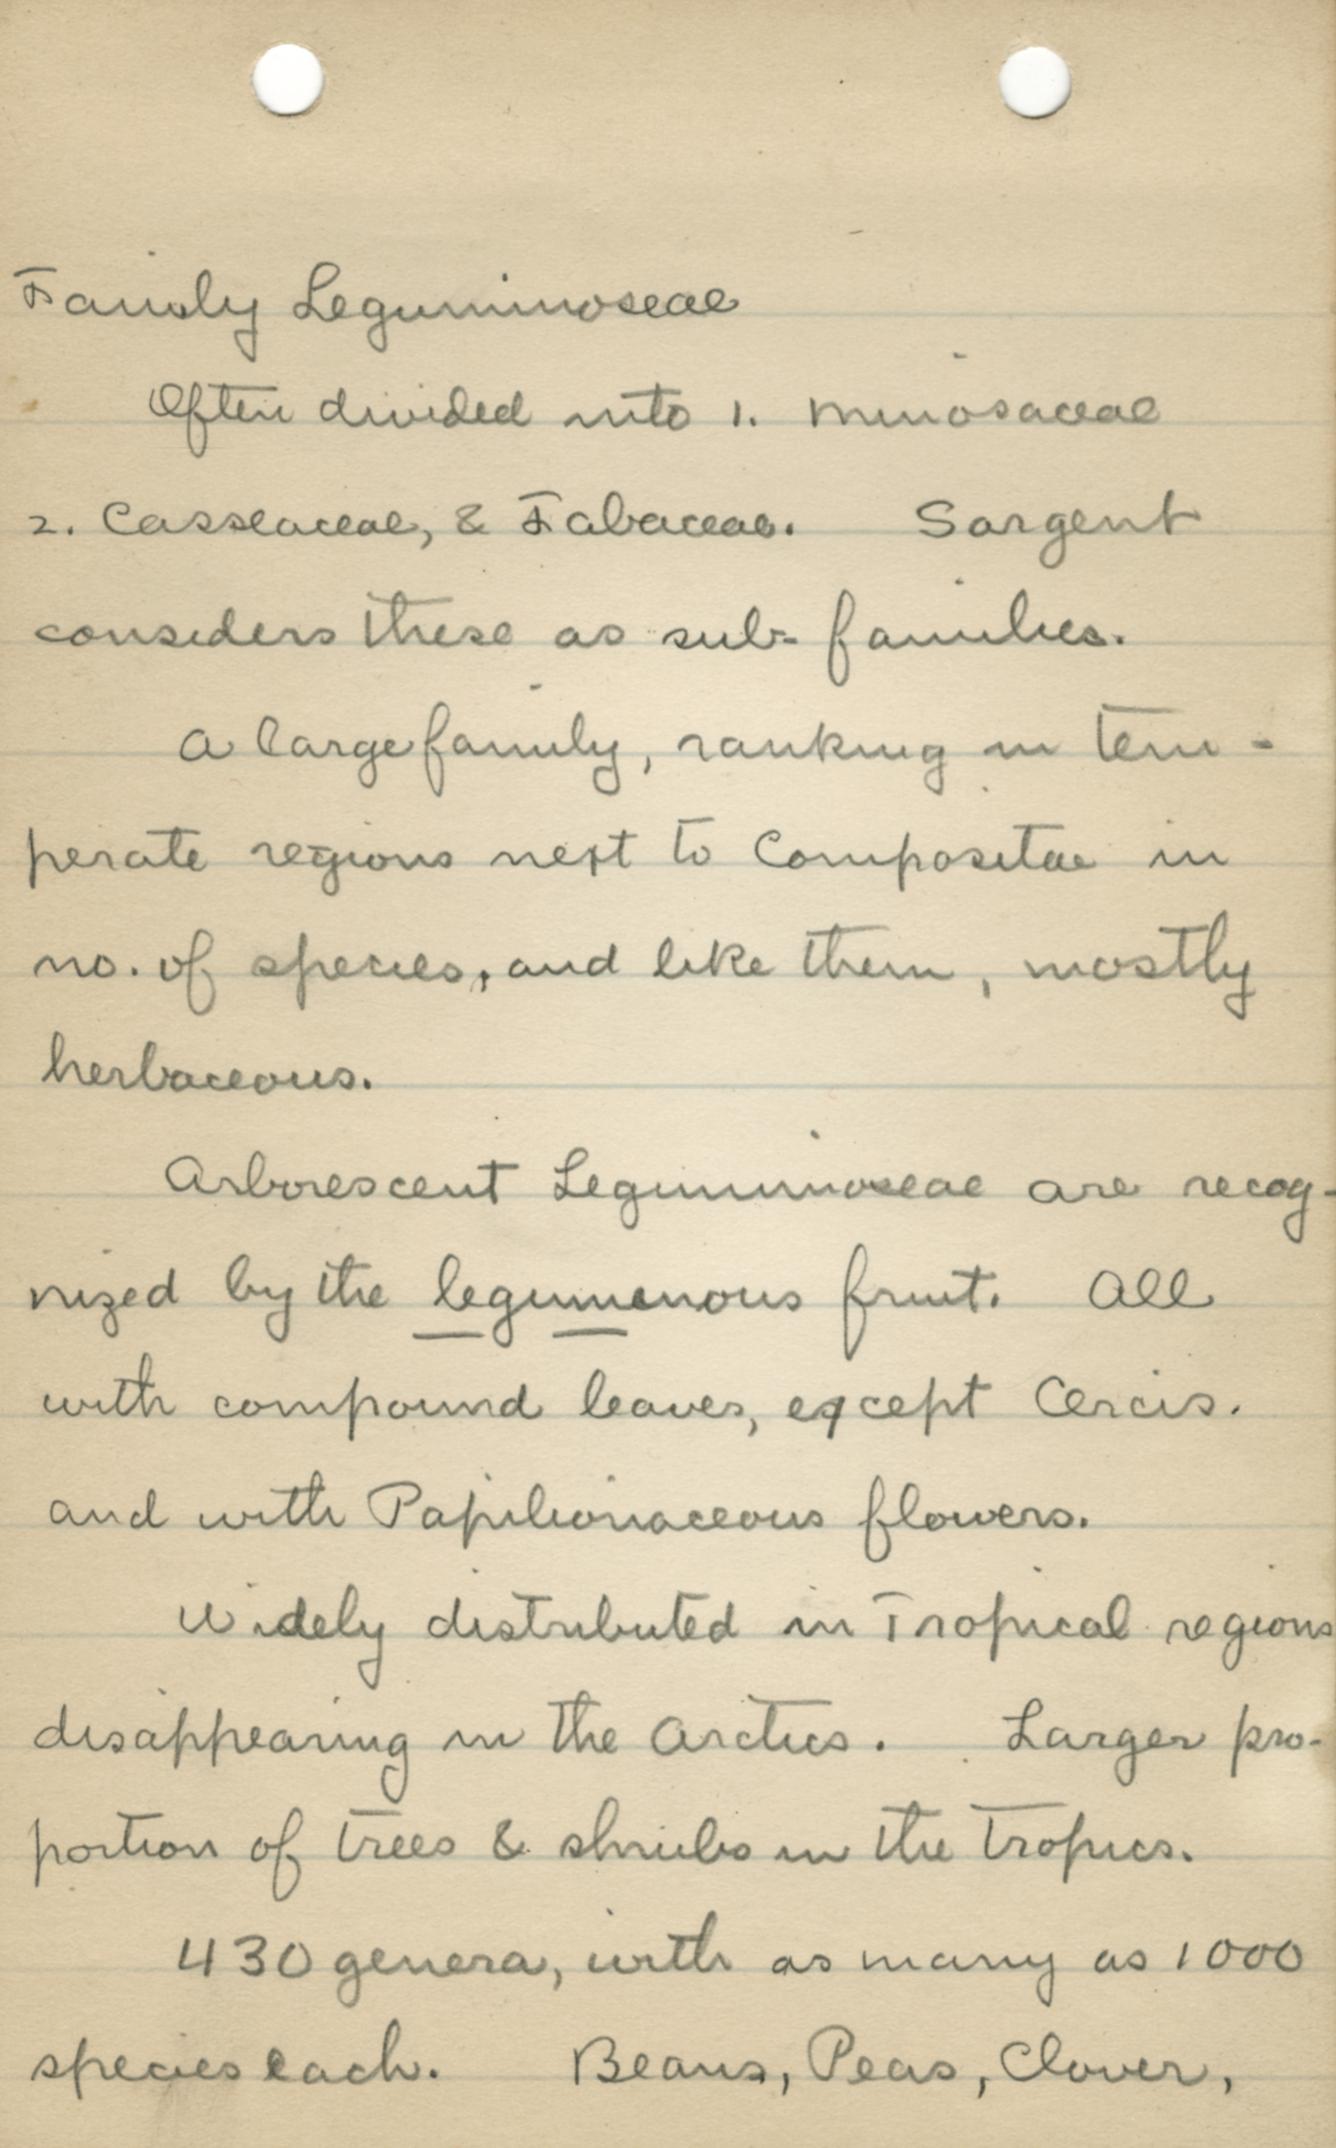 Family Leguminoseae
Often divided into 1. Mimosaceae
2. Casseaceae, & Fabaceae. Sargent
considers these as sub-families.
A large family, ranking in tem-
perate regions next to Compositae in
no. of species, and like them, mostly
herbaceous.
Arborescent Leguminoseae are recog-
nized by the legumenous fruit. All
with compound leaves, except Cercis.
and with Papilionaceous flowers.
Widely distributed in Tropical regions
disappearing in the Arctics. Larger pro-
portion of trees & shrubs in the tropics.
430 genera, with as many as 1000
species each. Beans, Peas, Clover,